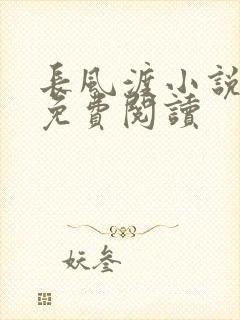 長風渡小說
免費閱讀
妖叁